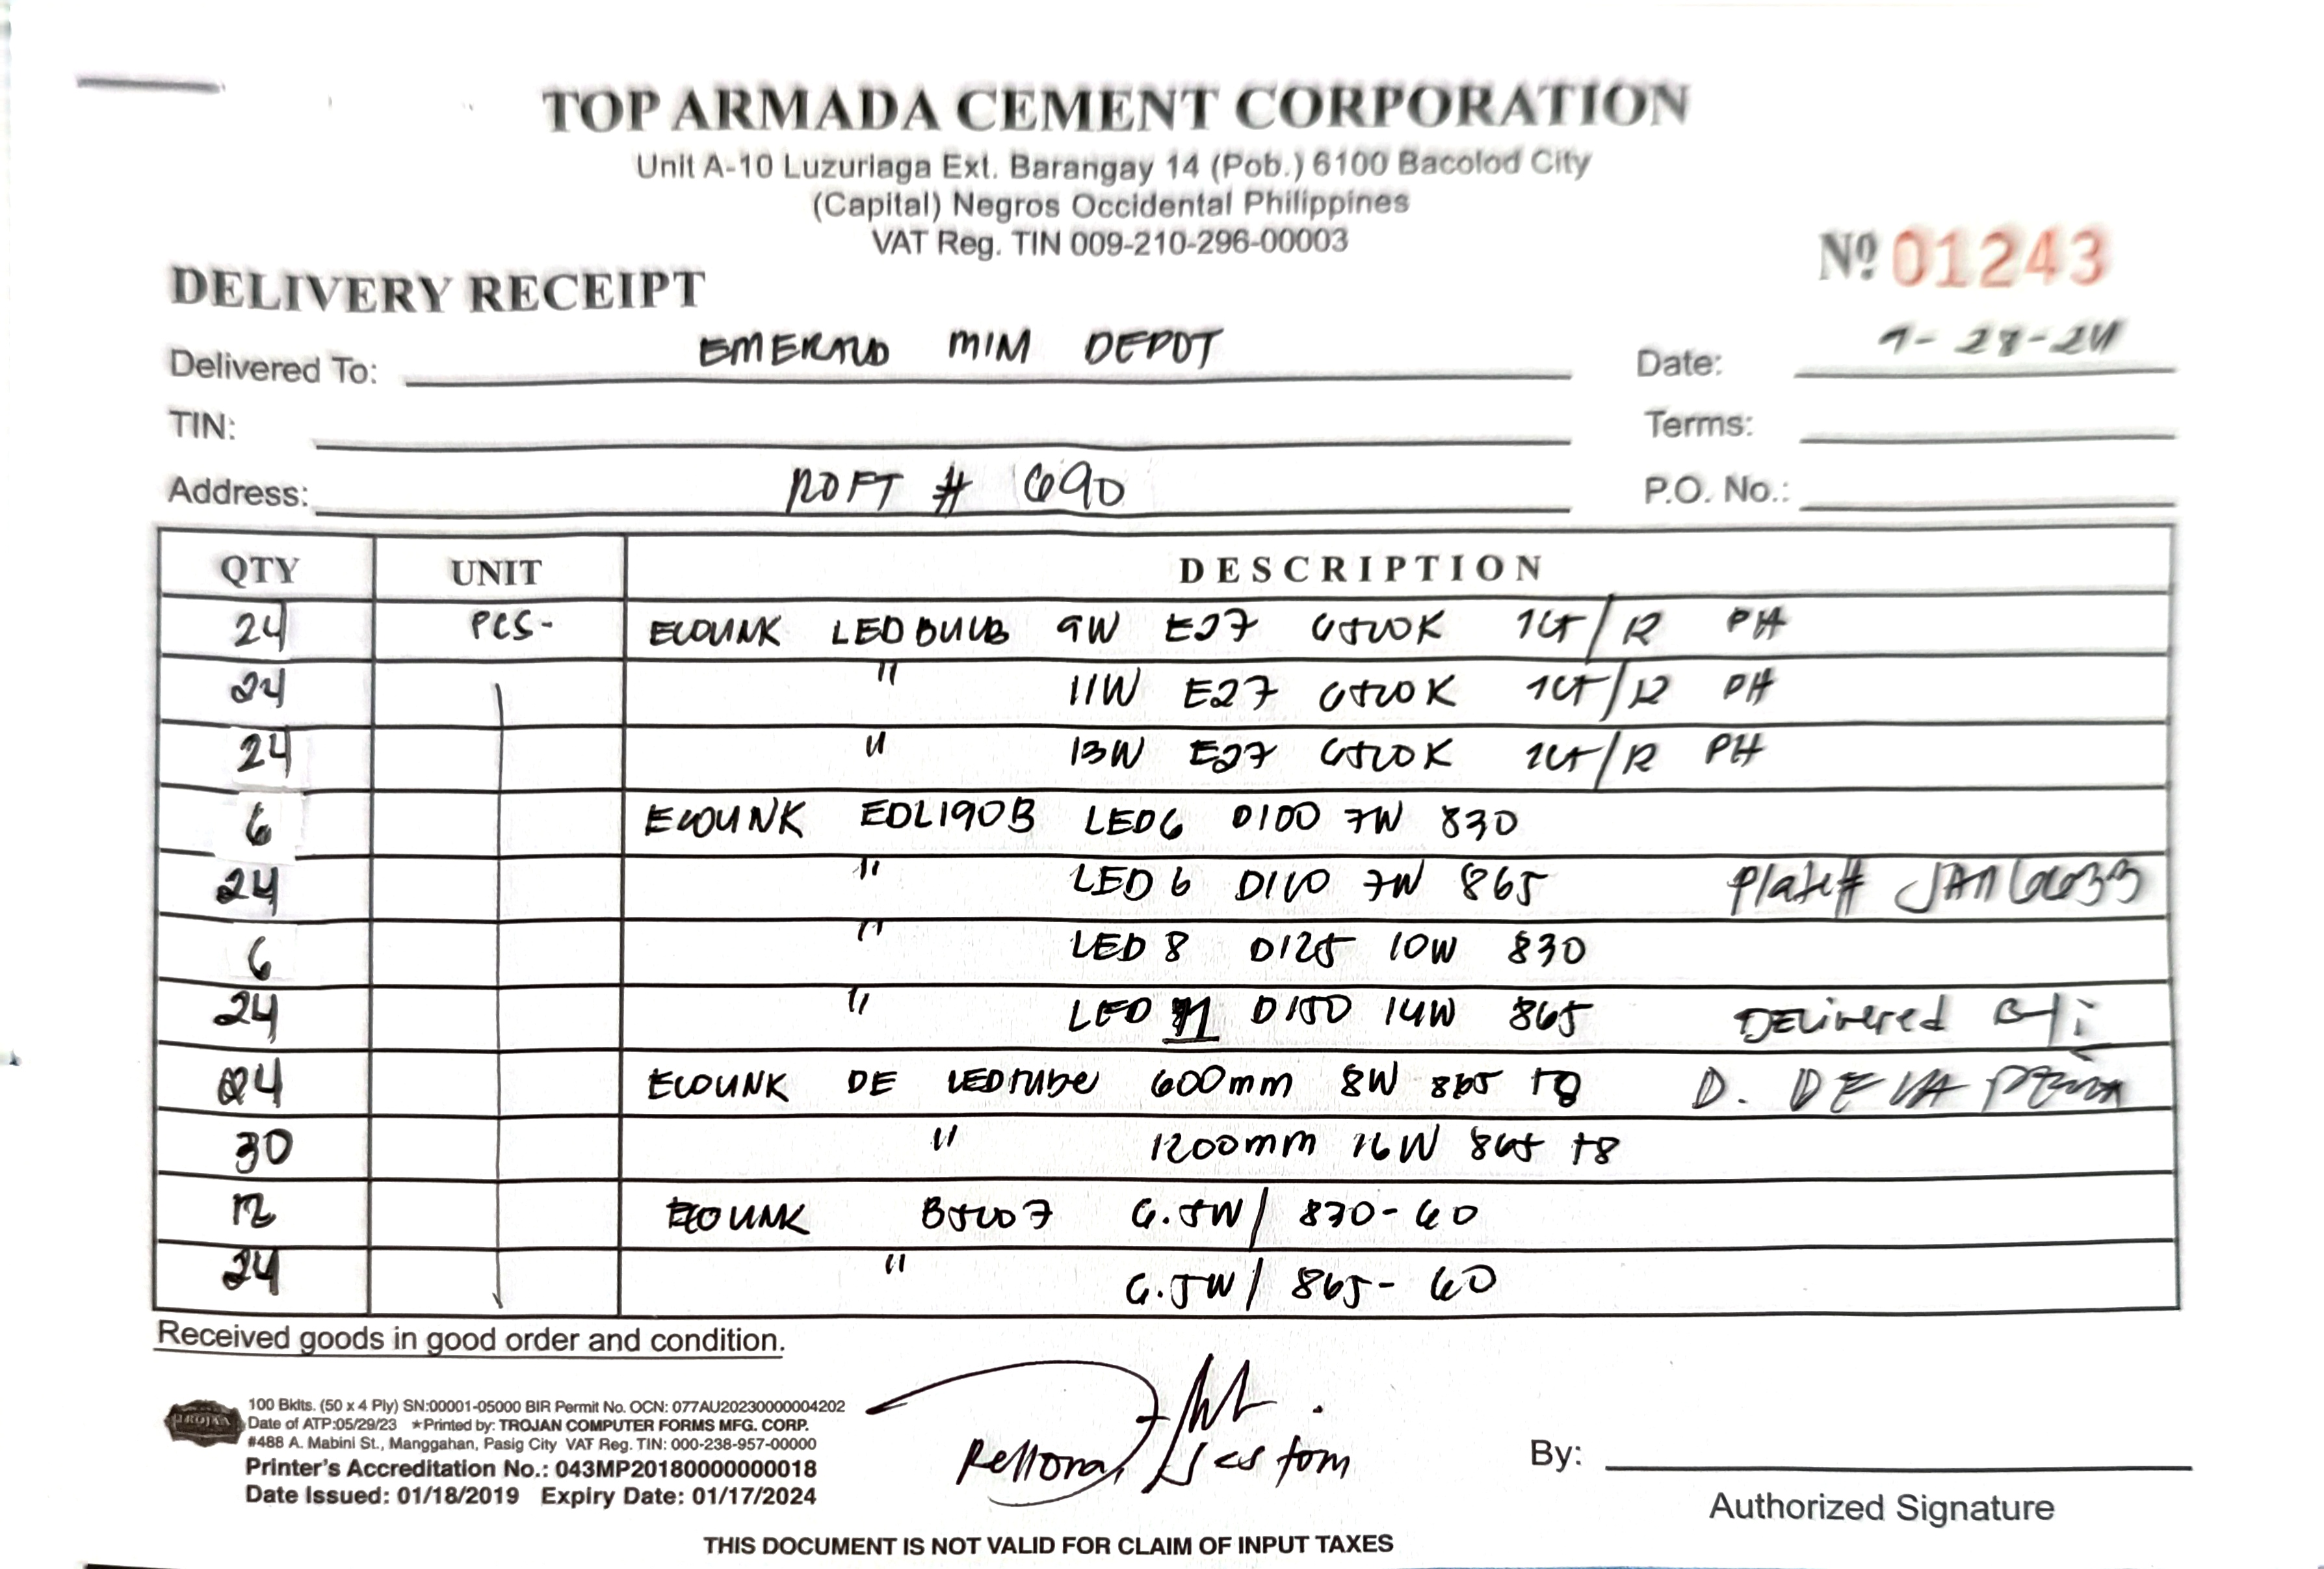 TOP ARMADA CEMENT CORPORATION
Unit A-10 Luzuriaga Ext. Barangay 14 (Pob.) 6100 Bacolod City
(Capital) Negros Occidental Philippines
VAT Reg. TIN 009-210-296-00003
Nº 01243
DELIVERY RECEIPT
Delivered To: EMERALD MIM DEPOT Date: 9-28-24
TIN: Terms:
Address: ROFT # 690 P.O. No.:
QTY UNIT DESCRIPTION
24 PCS- ECOLINK LED BULB 9W E27 6500K 1CT/12 PH
24 " 11W E27 6500K 1CT/12 PH
24 " 13W E27 6500K 1CT/12 PH
6 ECOLINK EDL190B LED6 D100 7W 830
24 " LED 6 D100 7W 865 Plate#
6 " LED 8 D125 10W 830
24 " LED 11 D150 14W 865 Delivered By:
24 ECOLINK DE LEDtube 600mm 8W 865 T8 D. DE LA PEÑA
30 " 1200mm 16W 865 T8
12 ECOLINK 6.5W/ 830-60
24 " 6.5W/ 865-60
Received goods in good order and condition.
TROJAN
100 Bklts. (50 x 4 Ply) SN:00001-05000 BIR Permit No. OCN: 077AU20230000004202
Date of ATP:05/29/23 ★Printed by: TROJAN COMPUTER FORMS MFG. CORP.
#488 A. Mabini St., Manggahan, Pasig City VAT Reg. TIN: 000-238-957-00000
Printer's Accreditation No.: 043MP20180000000018
Date Issued: 01/18/2019 Expiry Date: 01/17/2024
By:
Authorized Signature
THIS DOCUMENT IS NOT VALID FOR CLAIM OF INPUT TAXES